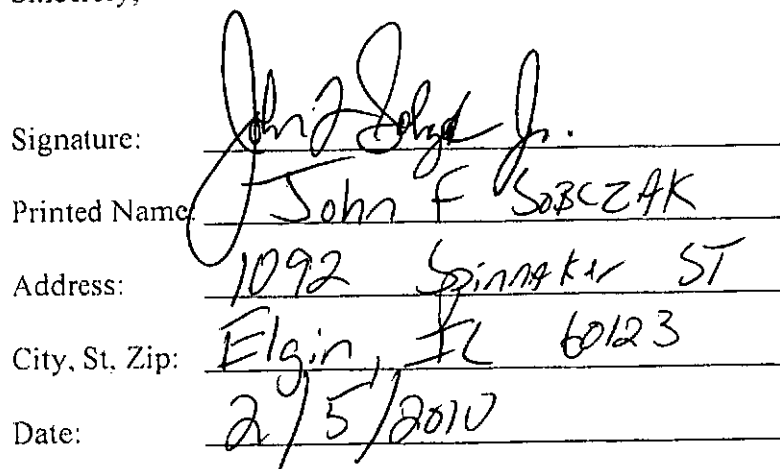 Signature: John F Sobczak Jr.
Printed Name: John F SOBCZAK
Address: 1092 Spinnaker ST
City, St, Zip: Elgin, IL 60123
Date: 2/5/2010